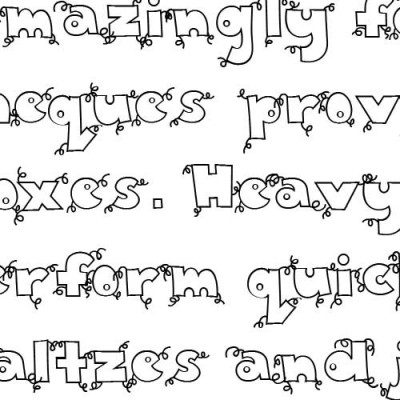 mazingly f
cques prov
oxes. Heavy
erform quic
altzes and j